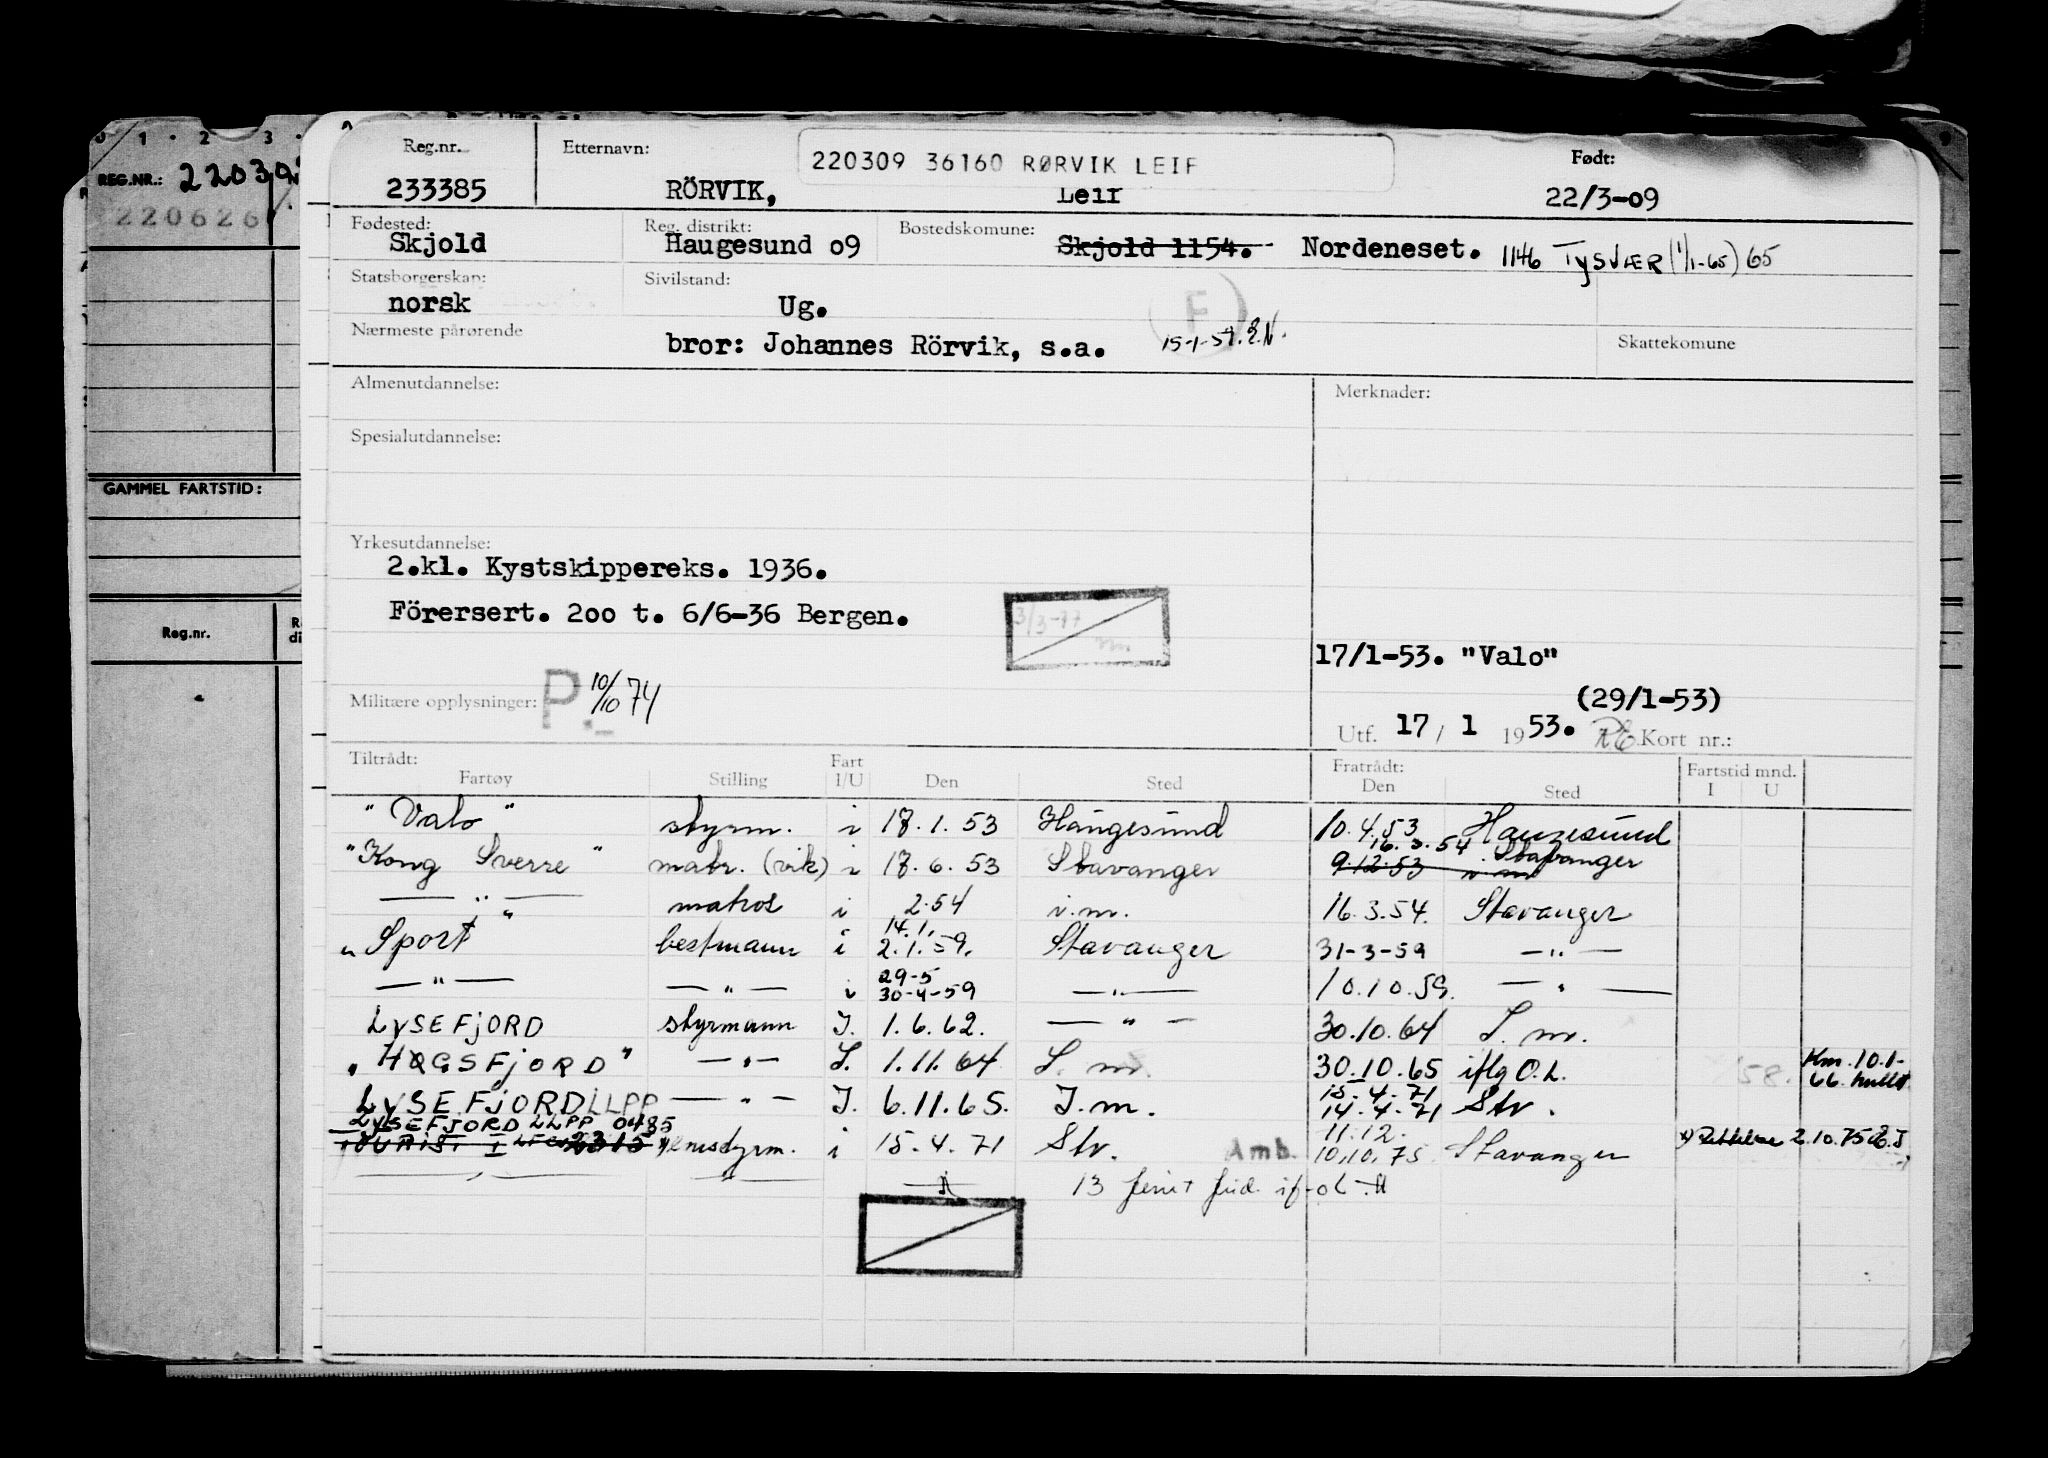 0 1 2 3
REG.NR.: 22030
220626
GAMMEL FARTSTID:
Reg.nr.
Reg.nr. Etternavn: 220309 36160 RØRVIK LEIF Født:
233385 RÖRVIK, Leif 22/3-09
Fødested: Reg. distrikt: Bostedskomune:
Skjold Haugesund 09 Skjold 1154. Nordeneset. 1146 TYSVÆR (1/1-65) 65
Statsborgerskap: Sivilstand:
norsk Ug. F
Nærmeste pårørende Skattekomune
bror: Johannes Rörvik, s.a. 15-1-59. E.N.
Almenutdannelse: Merknader:
Spesialutdannelse:
Yrkesutdannelse:
2.kl. Kystskippereks. 1936.
Förersert. 200 t. 6/6-36 Bergen. 3/3-77
17/1-53. "Valo"
(29/1-53)
Militære opplysninger: P. 10/10 74 Utf. 17 / 1 1953. Kort nr.:
Tiltrådt: Fart Fratrådt: Fartstid mnd.
Fartøy Stilling I/U Den Sted Den Sted I U
"Valo" styrm. i 18.1.53 Haugesund 10.4.53 Haugesund
16.3.54 Stavanger
"Kong Sverre" matr. (vik) i 18.6.53 Stavanger 9.12.53 i m
— " — matros i 2.54 i.m. 16.3.54. Stavanger
14.1.
"Sport" bestmann i 2.1.59. Stavanger 31-3-59 — " —
29-5
— " — — " — i 30-4-59 — " — 10.10.59. — " —
LYSEFJORD styrmann I. 1.6.62. — " — 30.10.64 I.m.
"HØGSFJORD" — " — I. 1.11.64 I.m. 30.10.65 iflg O.L. 58. Km. 10.1-66. hullt
15.4.71
LYSEFJORD LLPP — " — I. 6.11.65. I.m. 14.4.71 Stv.
LYSEFJORD LLPP 0485 11.12.
TURIST I 2315 i 15.4.71 Stv. Amb. 10.10.75 Stavanger 2.10.75
13